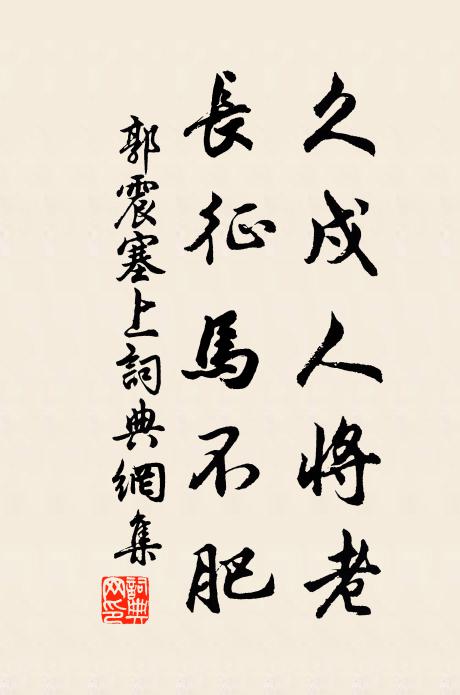 久戍人將老
長征馬不肥
郭震塞上詞典網集
詞典網印